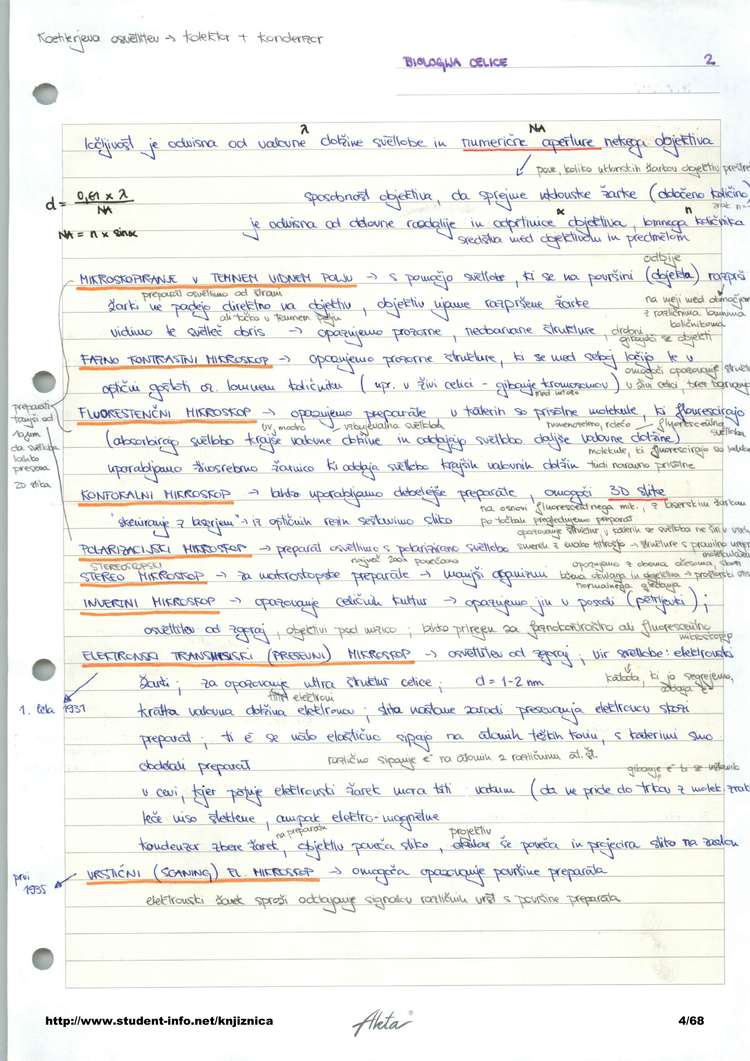 Koehlerjeva osvetlitev → kolektor + kondenzor
BIOLOGIJA CELICE 2
λ NA
ločljivost je odvisna od valovne dolžine svetlobe in numerične aperture nekega objektiva
pove, koliko uklonskih žarkov objektiv
d = 0,61 × λ / NA
sposobnost objektiva, da sprejme uklonske žarke (določeno količino)
NA = n × sinα
je odvisna od delovne razdalje in odprtinice α objektiva, lomnega n količnika
sredstva med objektivom in predmetom
odbije
MIKROSKOPIRANJE V TEMNEM VIDNEM POLJU → s pomočjo svetlobe, ki se na površini (objekta) razprši
preparat osvetlimo od strani
žarki ne padejo direktno na objektiv, objektiv ujame razpršene žarke
na meji med območjem
z različnima lomnima
količnikoma
ali točko v temnem polju
vidimo le svetleč obris → opazujemo prozorne, neobarvane strukture, drobni
gibajoči se objekti
FAZNO KONTRASTNI MIKROSKOP → opazujemo prozorne strukture, ki se med seboj ločijo le v
omogoči opazovanje
optični gostoti oz. lomnem količniku (npr. v živi celici - gibanje kromosomov) v živi celici, brez barvanja
med mitozo
preparati
tanjši od
da svetloba
lahko
preseva
2D slika
FLUORESCENČNI MIKROSKOP → opazujemo preparate v katerih so prisotne molekule, ki fluorescirajo
UV, modro vzbujevalna svetloba rumenozeleno, rdečo → fluorescenčna
svetloba
(absorbirajo svetlobo krajše valovne dolžine in oddajajo svetlobo daljše valovne dolžine)
molekule, ki fluorescirajo so lahko
uporabljamo živosrebrno žarnico ki oddaja svetlobo krajših valovnih dolžin tudi naravno prisotne
KONFOKALNI MIKROSKOP → lahko uporabljamo debelejše preparate, omogoči 3D slike
na osnovi fluorescentnega mik., z laserskim žarkom
"skeniranje z laserjem" → iz optičnih rezin sestavimo sliko po točkah pregledujemo preparat
opazovanje struktur v katerih se svetloba ne širi v vseh
POLARIZACIJSKI MIKROSKOP → preparat osvetlimo s polarizirano svetlobo smereh z enako hitrostjo → strukture s pravilno
STEREOSKOPSKI največ 200x povečano opazujemo z obema očesoma,
STEREO MIKROSKOP → za makroskopske preparate → manjši organizmi
normalnega gledanja
INVERTNI MIKROSKOP → opazovanje celičnih kultur → opazujemo jih v posodi (petrijevki);
osvetlitev od zgoraj, objektivi pod mizico; lahko prirejen za faznokontrastno ali fluorescenčno
mikroskopijo
ELEKTRONSKI TRANSMISIJSKI (PRESEVNI) MIKROSKOP → osvetlitev od zgoraj; vir svetlobe: elektronski
žarki; za opazovanje ultra struktur celice; d = 1-2 nm katoda, ki jo segrejemo,
oddaja e⁻
1. leta 1931
hitri elektroni
kratka valovna dolžina elektronov; slika nastane zaradi presevanja elektronov skozi
preparat; ti e⁻ se nato elastično sipajo na atomih težkih kovin, s katerimi smo
obdelali preparat različno sipanje e⁻ na atomih z različnim at. št.
gibanje e⁻ bi se
v cevi, kjer potuje elektronski žarek mora biti vakuum (da ne pride do trkov z molek. zraka
leče niso steklene, ampak elektro-magnetne
na preparatu projektiv
kondenzor zbere žarek, objektiv poveča sliko, okular še poveča in projecira sliko na zaslon
prvi
1935
VRSTIČNI (SCANING) EL. MIKROSKOP → omogoča opazovanje površine preparata
elektronski žarek sproži oddajanje signalov različnih vrst s površine preparata
http://www.student-info.net/knjiznica
Akta
4/68